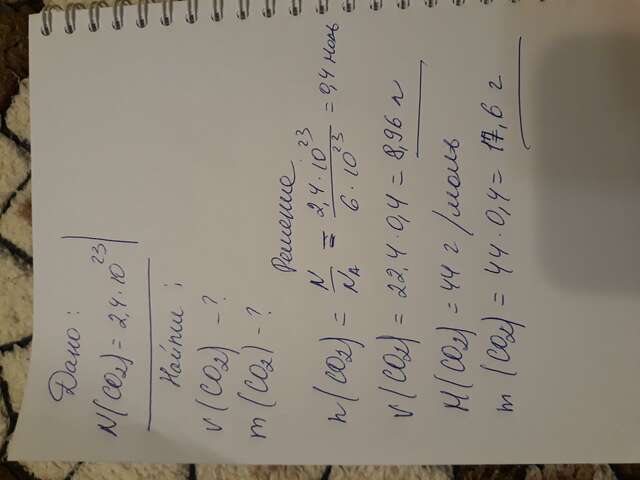 Дано:
N(CO2) = 2,4 · 10^23
Найти:
V(CO2) - ?
m(CO2) - ?
Решение
n(CO2) = N/NA = 2,4 · 10^23 / 6 · 10^23 = 0,4 моль
V(CO2) = 22,4 · 0,4 = 8,96 л
M(CO2) = 44 г/моль
m(CO2) = 44 · 0,4 = 17,6 г